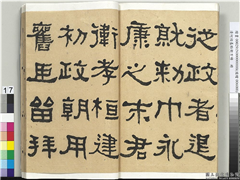 從政者退
就勑巾永
康之末君
衛孝桓建
初政朝用
舊臣留拜
17